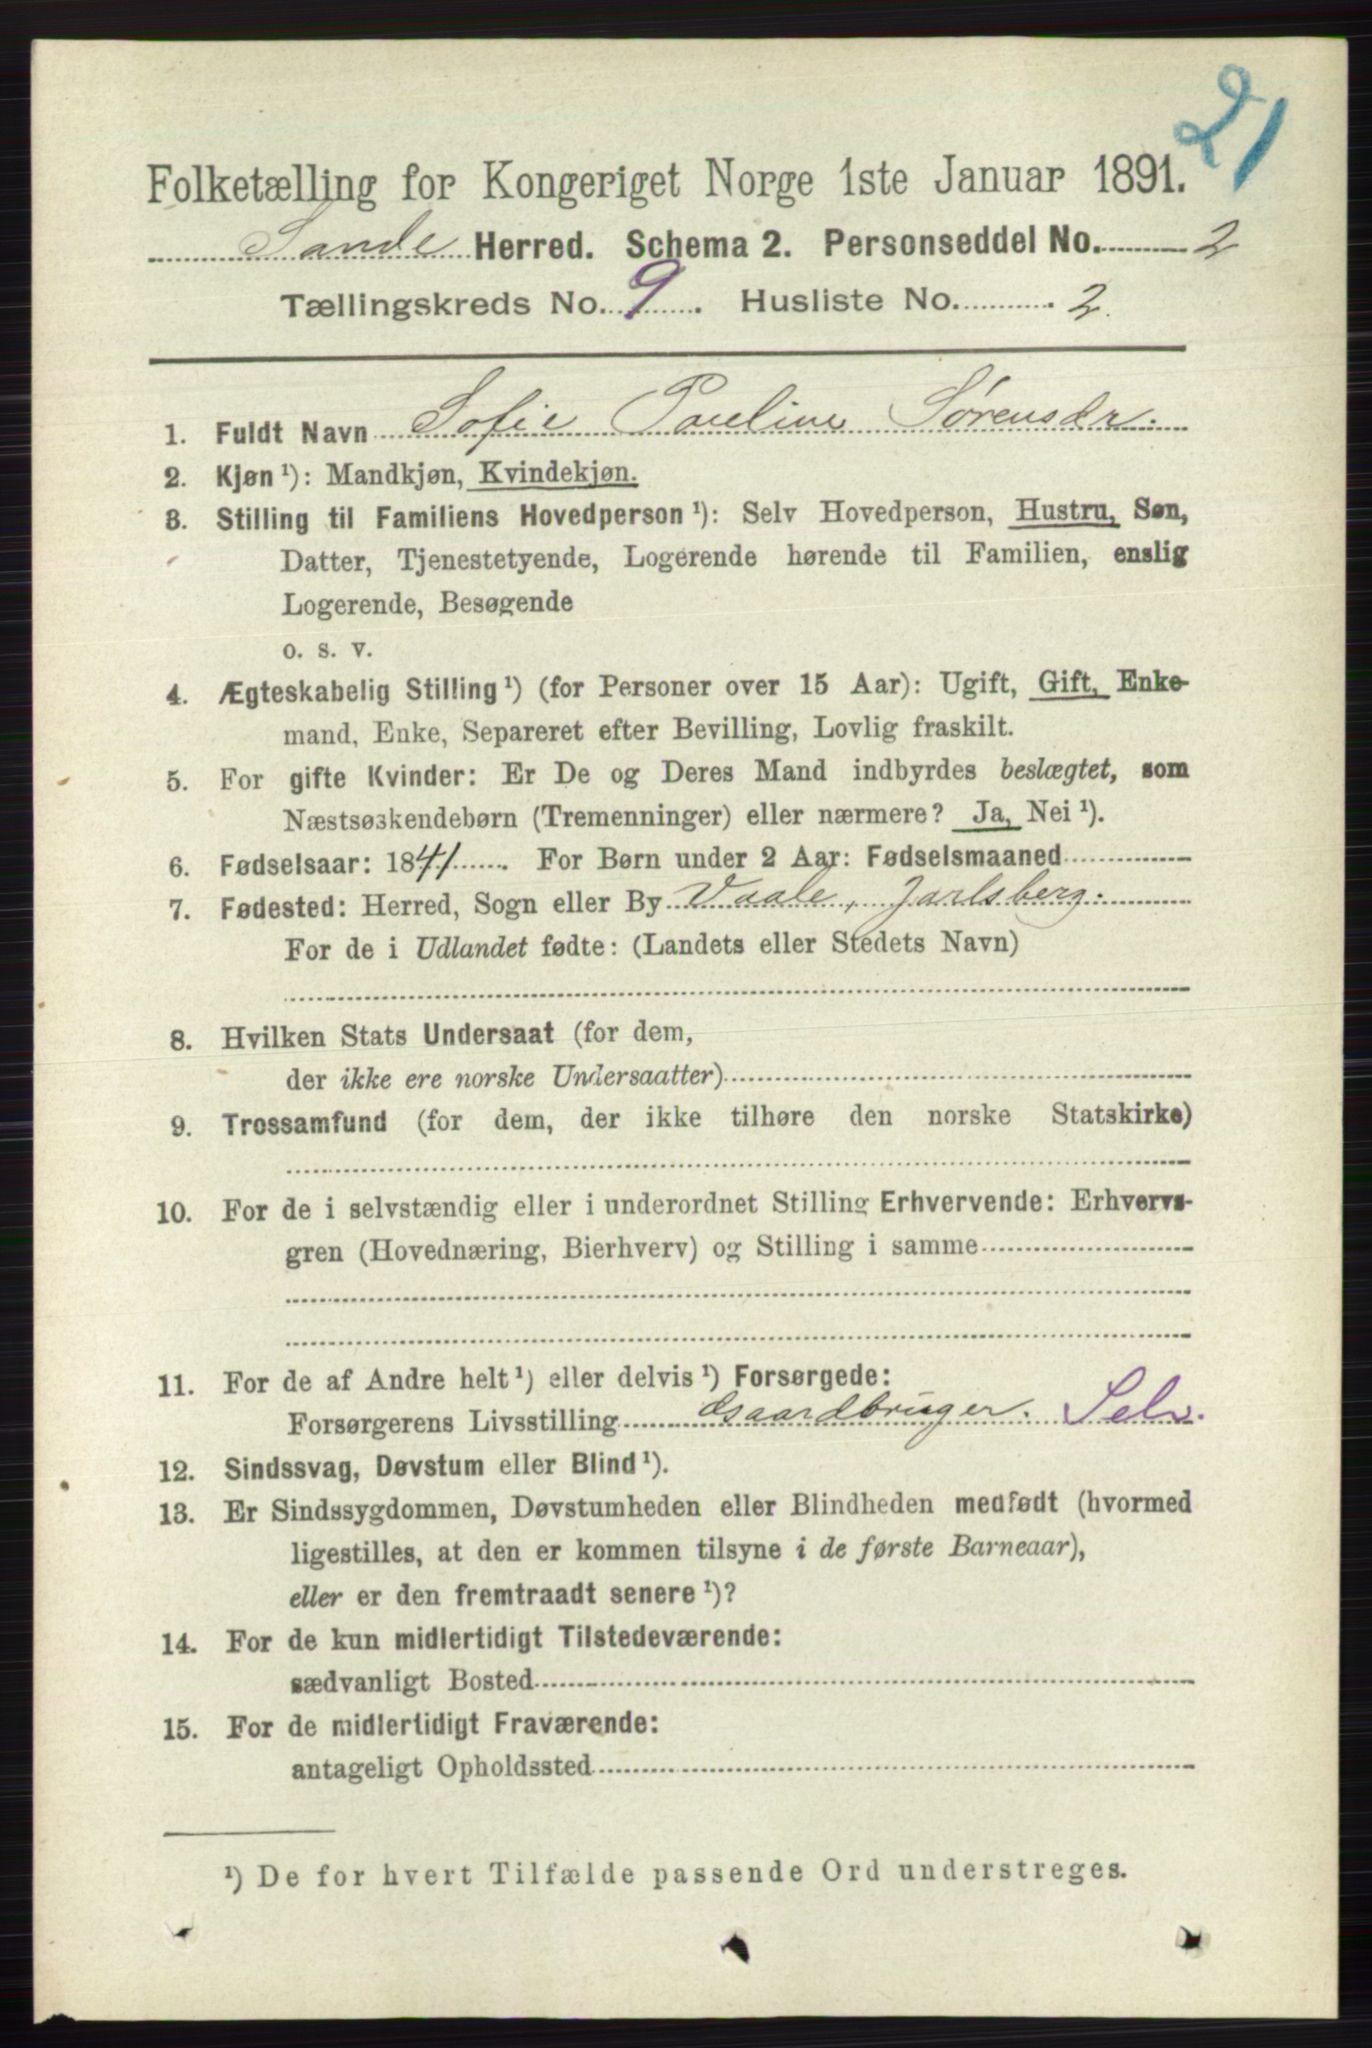 21
Folketælling for Kongeriget Norge 1ste Januar 1891.
Sande Herred. Schema 2. Personseddel No. 2
Tællingskreds No. 9. Husliste No. 2.
1. Fuldt Navn Sofie Pauline Sørensdr.
2. Kjøn ¹): Mandkjøn, Kvindekjøn.
3. Stilling til Familiens Hovedperson ¹): Selv Hovedperson, Hustru, Søn,
Datter, Tjenestetyende, Logerende hørende til Familien, enslig
Logerende, Besøgende
o. s. v.
4. Ægteskabelig Stilling ¹) (for Personer over 15 Aar): Ugift, Gift, Enke-
mand, Enke, Separeret efter Bevilling, Lovlig fraskilt.
5. For gifte Kvinder: Er De og Deres Mand indbyrdes beslægtet, som
Næstsøskendebørn (Tremenninger) eller nærmere? Ja, Nei ¹).
6. Fødselsaar: 1841. For Børn under 2 Aar: Fødselsmaaned
7. Fødested: Herred, Sogn eller By Vaale, Jarlsberg.
For de i Udlandet fødte: (Landets eller Stedets Navn)
8. Hvilken Stats Undersaat (for dem,
der ikke ere norske Undersaatter)
9. Trossamfund (for dem, der ikke tilhøre den norske Statskirke)
10. For de i selvstændig eller i underordnet Stilling Erhvervende: Erhvervs-
gren (Hovednæring, Bierhverv) og Stilling i samme
11. For de af Andre helt ¹) eller delvis ¹) Forsørgede:
Forsørgerens Livsstilling Gaardbruger. Selv.
12. Sindssvag, Døvstum eller Blind ¹).
13. Er Sindssygdommen, Døvstumheden eller Blindheden medfødt (hvormed
ligestilles, at den er kommen tilsyne i de første Barneaar),
eller er den fremtraadt senere ¹)?
14. For de kun midlertidigt Tilstedeværende:
sædvanligt Bosted
15. For de midlertidigt Fraværende:
antageligt Opholdssted
¹) De for hvert Tilfælde passende Ord understreges.